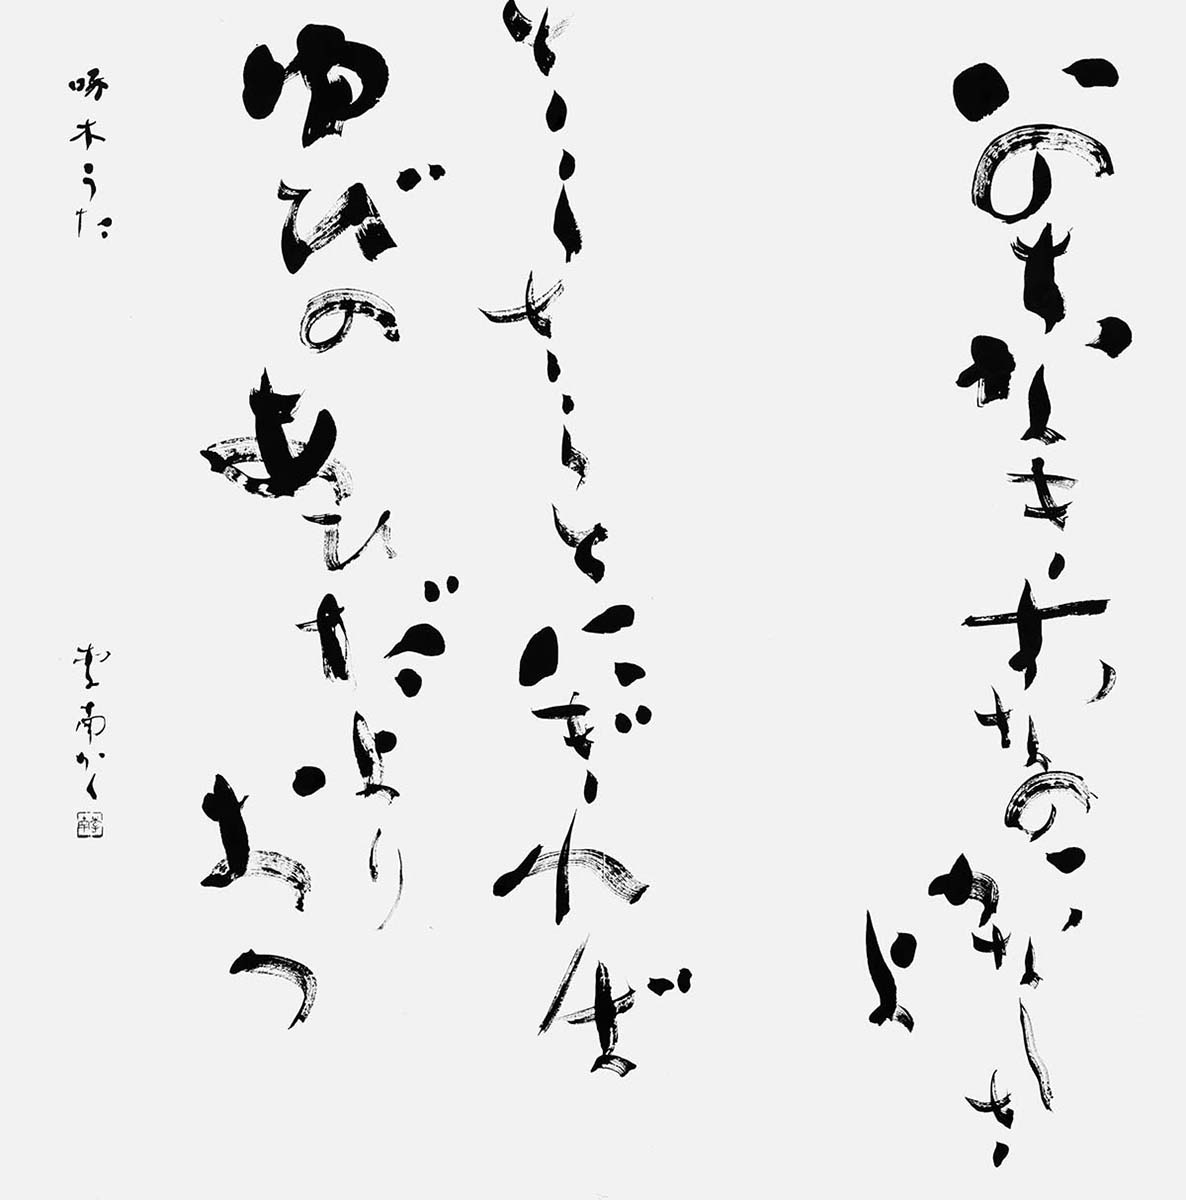 いのちなきすなのかなしさ
よ
さらさらとにぎれば
ゆびのあひだより
おつ
啄木うた
かく